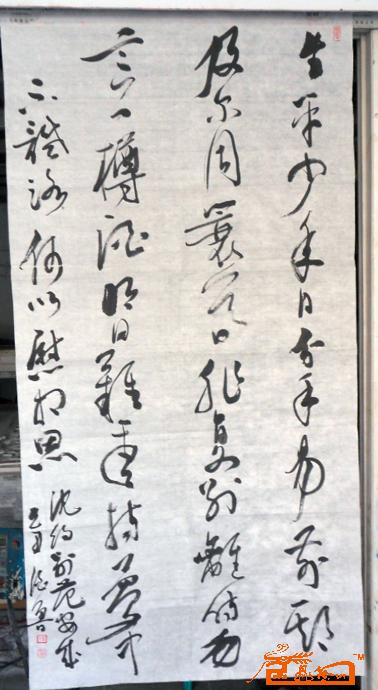 生平少年日分手易前期
及尔同衰暮非复别離時勿
言一樽酒明日難重持夢中
不識路何以慰相思
沈約别范安成
己丑